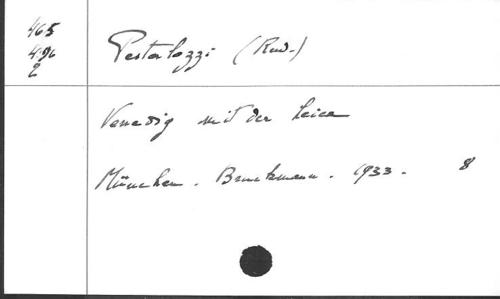 465
496
2
Pestalozzi (Rud.)
Venedig mit der Leica
München. Bruckmann. 1933. 8